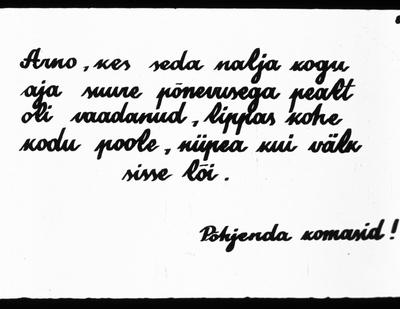 Arno, kes seda nalja kogu
aja suure põnevusega pealt
oli vaadanud, lippas kohe
kodu poole, niipea kui välk
sisse lõi.
Põhjenda komasid!